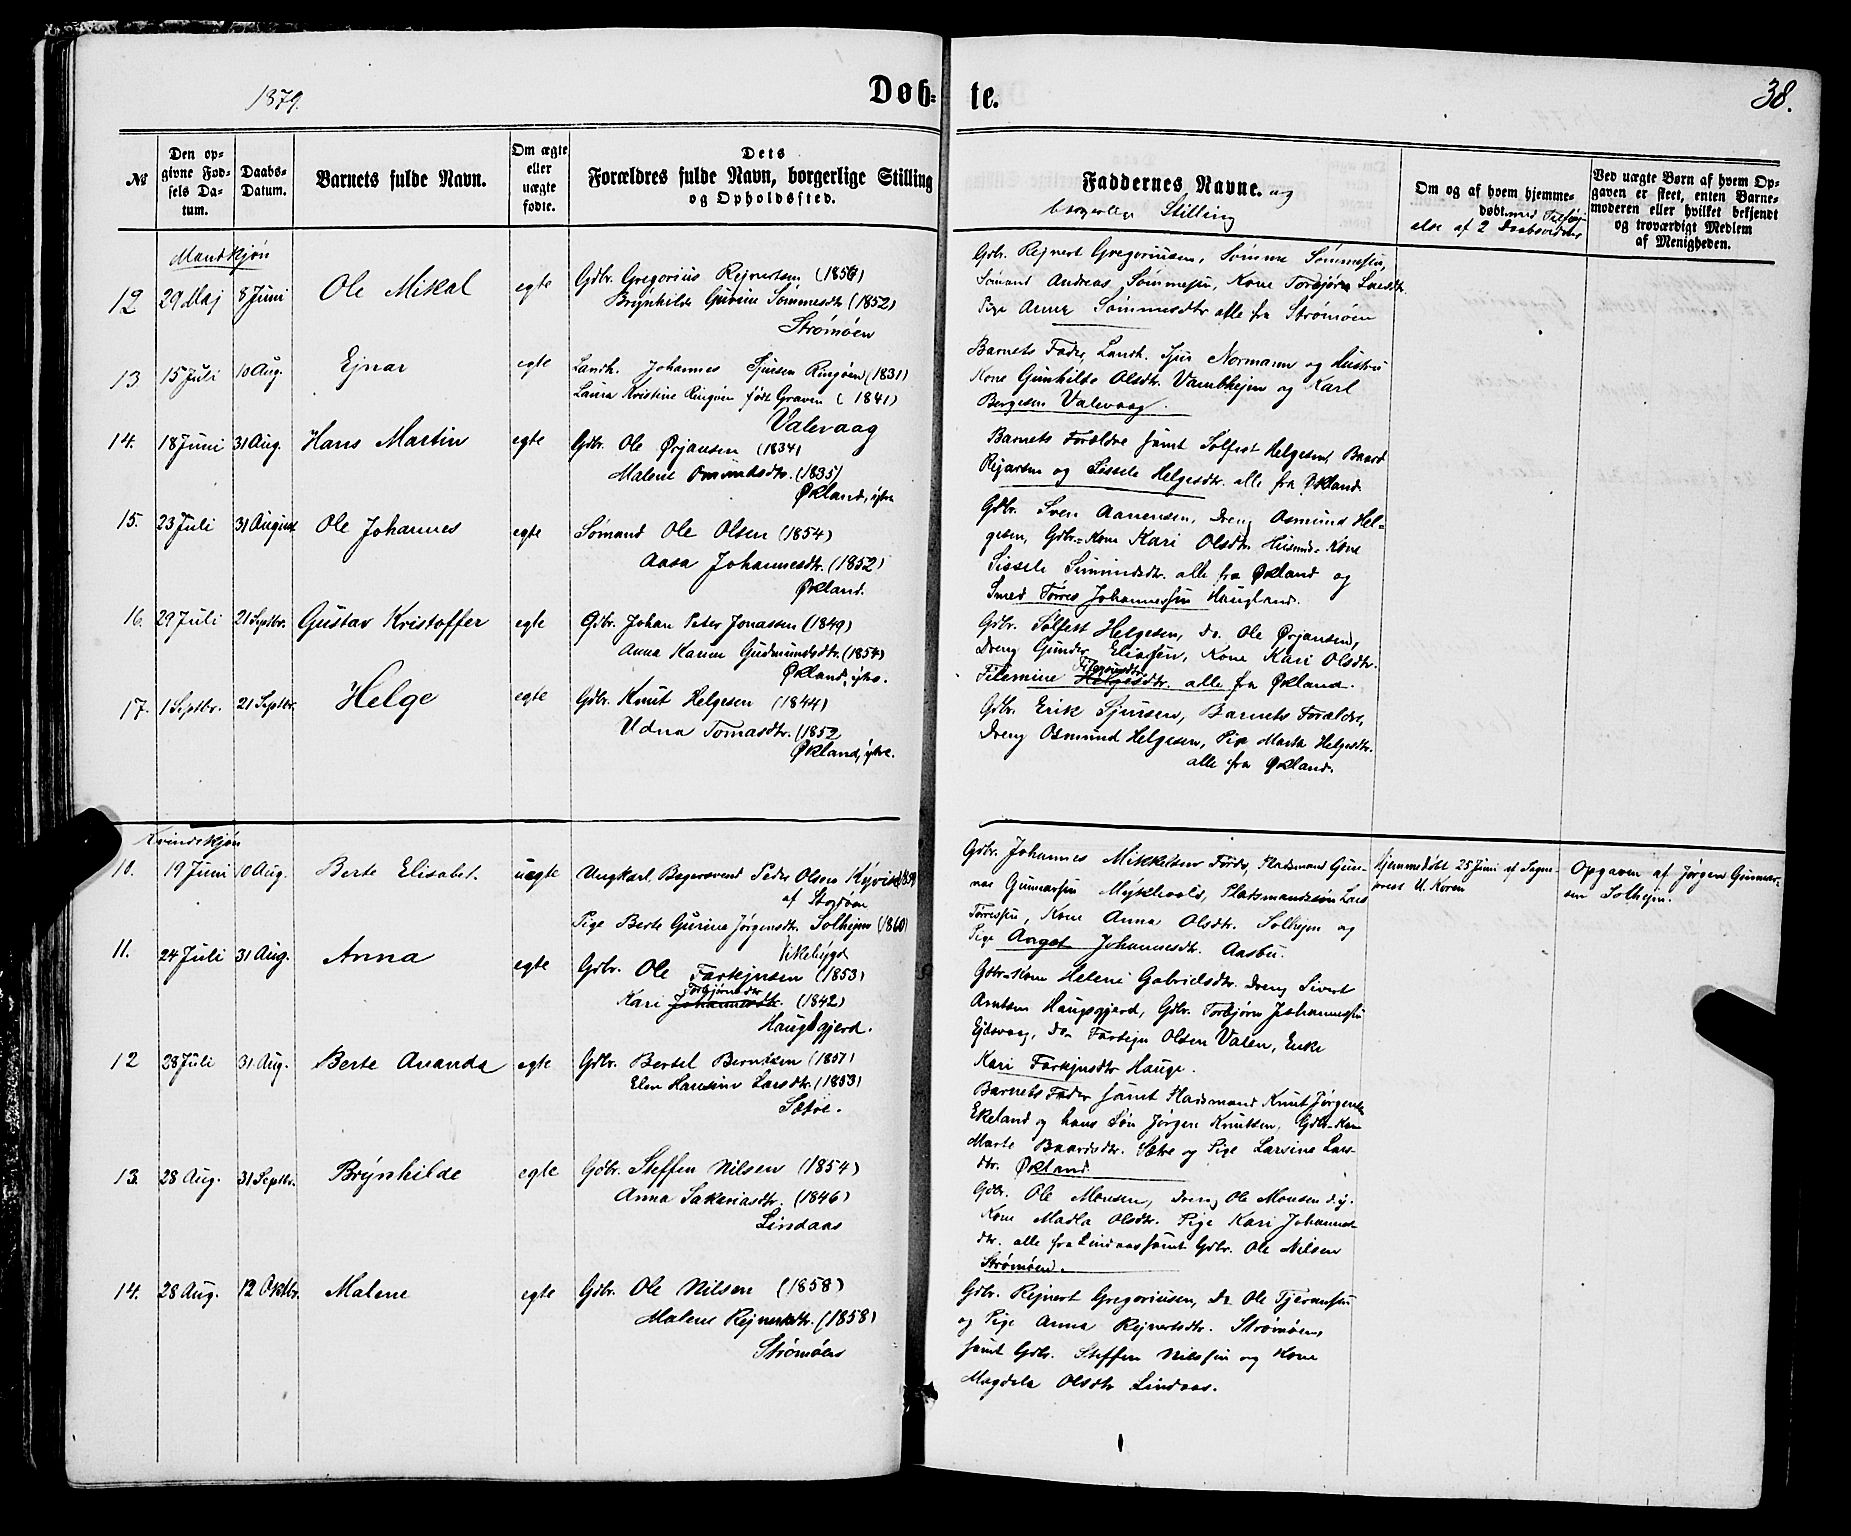 1879.
Døb-
te.
38.
№
Den op-
givne Fød-
sels Da-
tum.
Daabs-
Datum.
Barnets fulde Navn.
Om ægte
eller
uægte
fødte.
Dets
Forældres fulde Navn, borgerlige Stilling
og Opholdssted.
Faddernes Navne. og
borgerlige Stilling
Om og af hvem hjemme-
døbt. med Tilføj-
else af 2 Daabsvidner
Ved uægte Børn af hvem Op-
gaven er skeet, enten Barne-
moderen eller hvilket bekjendt
og troværdigt Medlem
af Menigheden.
Mandkjøn
12 29 Maj 8 Juni Ole Mikal egte Gdbr. Gregorius Rejnertsen (1856)
Brynhilde Gurine Sømmesdtr (1852)
Strømøen
Gdbr. Rejnert Gregoriussen, Sømme Sømmesen,
Sømand Andreas Sømmesen, Kone Torbjørn Larsdtr.
Pige Anna Sømmesdtr alle fra Strømøen
13 15 Juli 10 Aug. Ejnar egte Landh. Johannes Sjursen Ringøen (1831)
Laura Kristine Ringøen født Graven (1841)
Valevaag
Barnets Fader, Landh. Sjur Normann og Hustru
Kone Gunhilde Olsdtr. Vambhejm og Karl
Bergesen Valevaag.
14. 18 Juni 31 Aug. Hans Martin egte Gdbr. Ole Ørjansen (1834)
Malene Omundsdtr. (1835)
Økland, ytre
Barnets Forældre samt Sølfest Helgesen, Baard
Rejarsen og Sissele Helgesdtr. alle fra Økland.
15. 23 Juli 31 August Ole Johannes egte Sømand Ole Olsen (1854)
Aasa Johannesdtr. (1852)
Økland.
Gdbr. Sven Aanensen, Dreng Osmund Hel-
gesen, Gdbr.-Kone Kari Olsdtr. Husmds. Kone
Sissele Simundsdtr. alle fra Økland og
Smed Tørres Johannessen Haugland.
16. 29 Juli 21 Septbr. Gustav Kristoffer egte Gdbr. Johan Peter Jonassen (1849)
Anna Karine Gudmundsdtr. (1854)
Økland, ytre.
Gdbr. Sølfest Helgesen, Do. Ole Ørjansen,
Dreng Gunder Eliassen, Kone Kari Olsdtr.
Filemine Helgesdtr. alle fra Økland.
17. 1 Septbr. 21 Septbr. Helge egte Gdbr. Knut Helgesen (1844)
Udna Tomasdtr. (1852
Økland, ytre.
Gdbr. Erik Sjursen, Barnets Forældre,
Dreng Osmund Helgesen, Pige Marta Helgesdtr.
alle fra Økland.
Kvindekjøn
10. 19 Juni 10 Aug. Berte Elisabet. uegte Ungkarl. Bagersvend Peder Olsen Kyvik
af Stordøen
Pige Berte Gurine Jørgensdtr. Solhejm (1860)
Vikebygd
Gdbr. Johannes Mikkelsen Førde, Pladsmand Gun-
nar Gunnarsen Myklevold, Pladsmandssøn Lars
Tørressen, Kone Anna Olsdtr. Solhejm og
Pige Anget Johannesdtr. Aasbu.
Hjemmedøbt 25 Juni af Sogne-
prest U. Koren
Opgaven af Jørgen Gunnar-
sen Solhejm.
11. 24 Juli 31 Aug. Anna egte Gdbr. Ole Farkejnsen (1853)
Torbjørnsdtr
Kari Johannesdtr. (1842)
Haugsgjerd.
Gdbr-Kone Helene Gabrielsdtr. Dreng Sivert
Arntsen Haugsgjerd, Gdbr. Torbjørn Johannessen
Ejdsvaag, Do. Farteju Olsen Valen, Enke
Kari Farkejnsdtr Hauge.
12 28 Juli 31. Aug. Berte Ananda egte Gdbr. Bertel Berntsen (1857)
Elen Hansine Larsdtr. (1853)
Sætre.
Barnets Fader samt Pladsmand Knut Jørgensen
Ekeland og hans Søn Jørgen Knutsen, Gdbr-Kone
Marte Baardsdtr. Sætre og Pige Larsine Lars-
dtr. Økland.
13. 28 Aug. 31 Septbr. Brynhilde egte Gdbr. Steffen Nilsen (1854)
Anna Sakariasdtr. (1846)
Lindaas
Gdbr. Ole Monsen, Dreng Ole Monsen d. y.
Kone Madla Olsdtr. Pige Kari Johannes-
dtr. alle fra Lindaas samt Gdbr. Ole Nilsen
Strømøen.
14. 28 Aug. 12 Oktbr. Malene egte Gdbr. Ole Nilsen (1858)
Malene Rejnertsdtr. (1858)
Strømøen
Gdbr. Rejnert Gregoriussen, Do Ole Tjeransen
og Pige Anna Rejnertsdtr. Strømøen,
samt Gdbr. Steffen Nilssen og Kone
Magdela Olsdtr Lindaas.